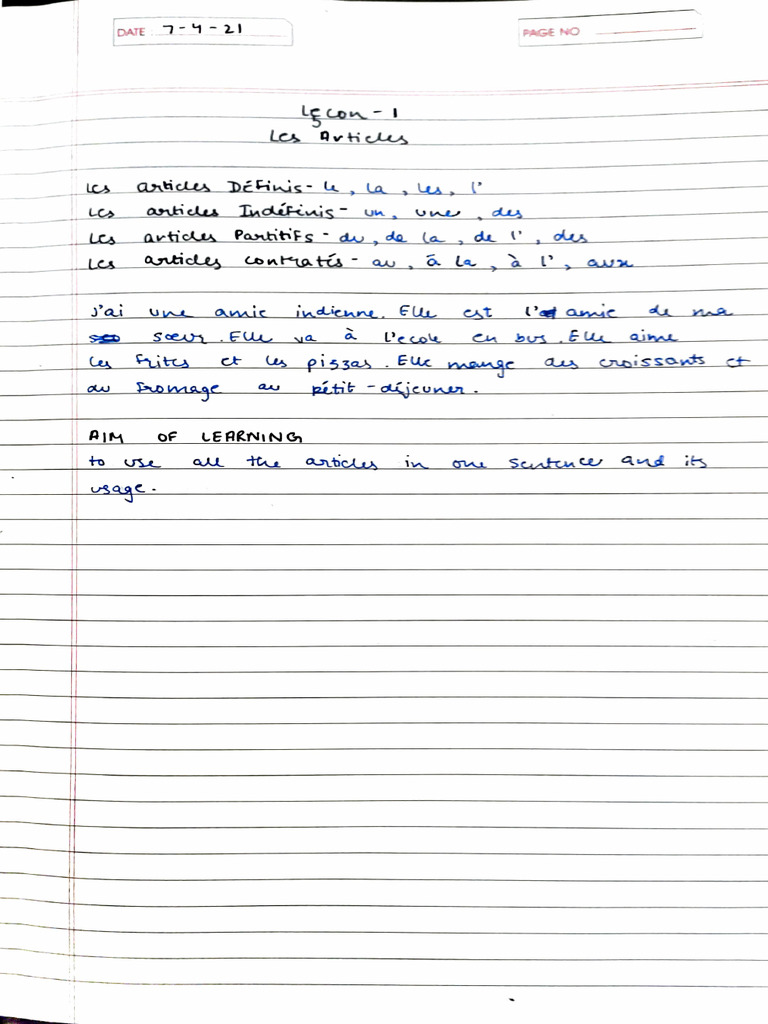 DATE 7-4-21
PAGE NO
Leçon - 1
Les Articles
Les articles DÉFinis - le, la, les, l'
Les articles Indéfinis - un, une, des
Les articles Partitifs - du, de la, de l', des
Les articles contratés - au, à la, à l', aux
J'ai une amie indienne. Elle est l'amie de ma
sœur. Elle va à l'ecole en bus. Elle aime
les frites et les pizzas. Elle mange des croissants et
du fromage au pétit-déjeuner.
AIM OF LEARNING
to use all the articles in one sentence and its
usage.